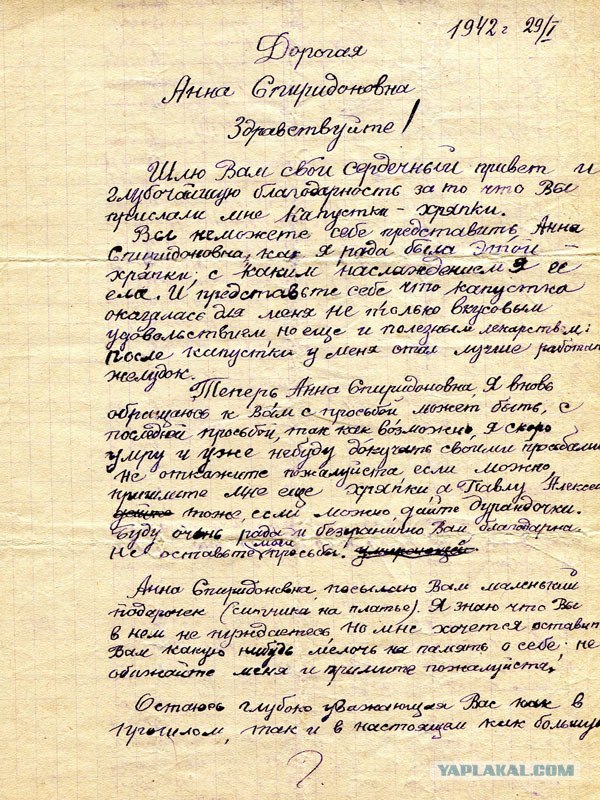 1942 г 29/I
Дорогая
Анна Спиридоновна
Здравствуйте!
Шлю Вам свой сердечный привет и
глубочайшую благодарность за то что Вы
прислали мне капустки – хряпки.
Вы неможете себе представить Анна
Спиридоновна, как я рада была этой
хряпки; с каким наслаждением я ее
ела. И представьте себе что капустка
оказалась для меня не только вкусовым
удовольствием но еще и полезным лекарством:
После капустки у меня стал лучше работат
желудок.
Теперь Анна Спиридоновна, Я вновь
обращаюсь к Вам с просьбой может быть, с
последней просьбой, так как возможно, я скоро
умру и уже небуду докучать своими просьбами
не откажите пожалуйста если можно,
пришлите мне еще хряпки а Павлу Алексе
тоже, если можно дайте дурандочки.
Буду очень рада и безгранично Вам благодарна.
Не оставьте мои просьбы. умирающей.
Анна Спиридоновна, посылаю Вам маленький
подарочек (ситчика на платье). Я знаю что Вы
в нем не нуждаетесь, но мне хочется оставит
Вам какую нибудь мелочь на память о себе; не
обижайте меня и примите пожалуйста,
Остаюсь глубоко уважающая Вас как в
прошлом, так и в настоящем как большую
YAPLAKAL.COM